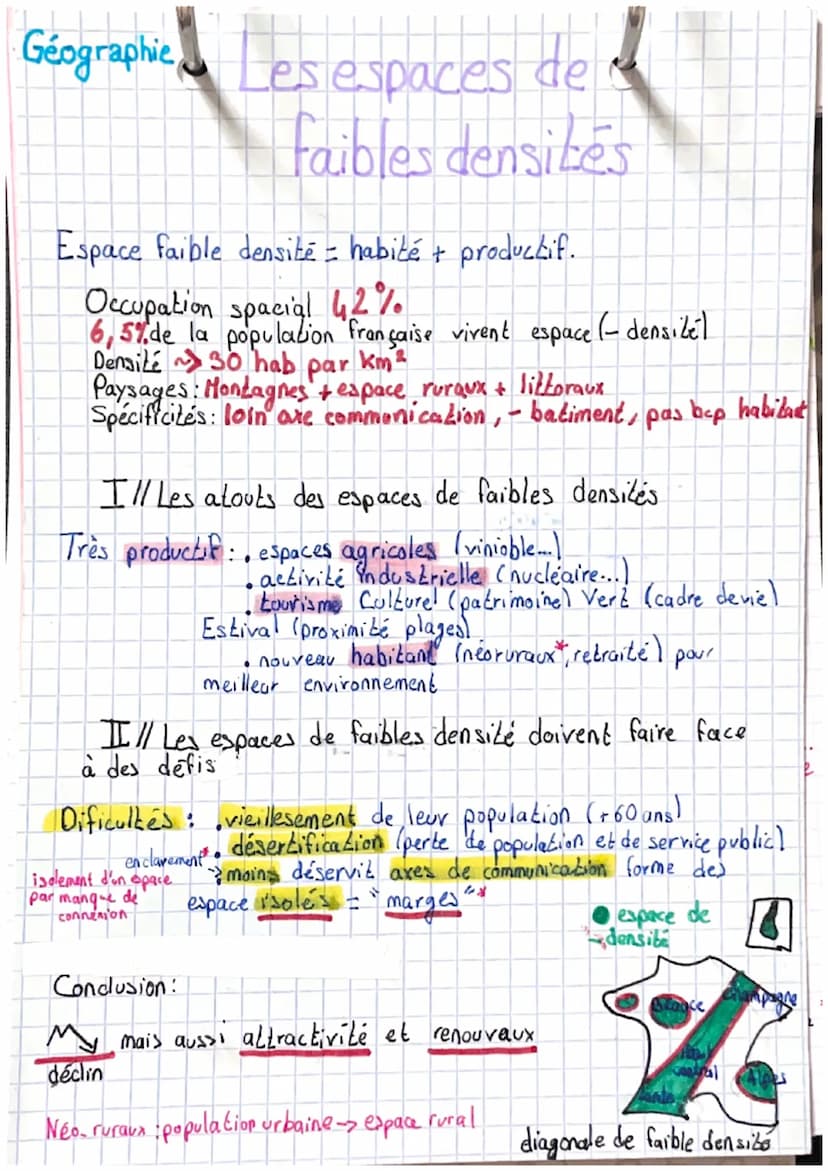 Géographie
Les espaces de
faibles densités
Espace faible densité = habité + productif.
Occupation spacial 42%
6,5% de la population française vivent espace (- densité)
Densité ~> 30 hab par km²
Paysages : Montagnes + espace ruraux + littoraux
Spécificités : loin axe communication, - batiment, pas bcp habitant
I // Les atouts des espaces de faibles densités
Très productif : . espaces agricoles (vinioble...)
. activité industrielle (nucléaire...)
. tourisme Culturel (patrimoine) Vert (cadre de vie)
Estival (proximité plages)
. nouveau habitant (néoruraux*, retraité) pour
meilleur environnement
II // Les espaces de faibles densité doivent faire face
à des défis
Dificultés : . vieillesement de leur population (+60 ans)
. désertification (perte de population et de service public)
enclavement*
-> moins déservit axes de communication forme des
isolement d'un espace
par manque de
connexion
espace isolés = "marges"*
espace de
- densité
Conclusion :
mais aussi attractivité et renouvaux
déclin
Champagne
Alpes
Néo-ruraux : population urbaine -> espace rural
diagonale de faible densité